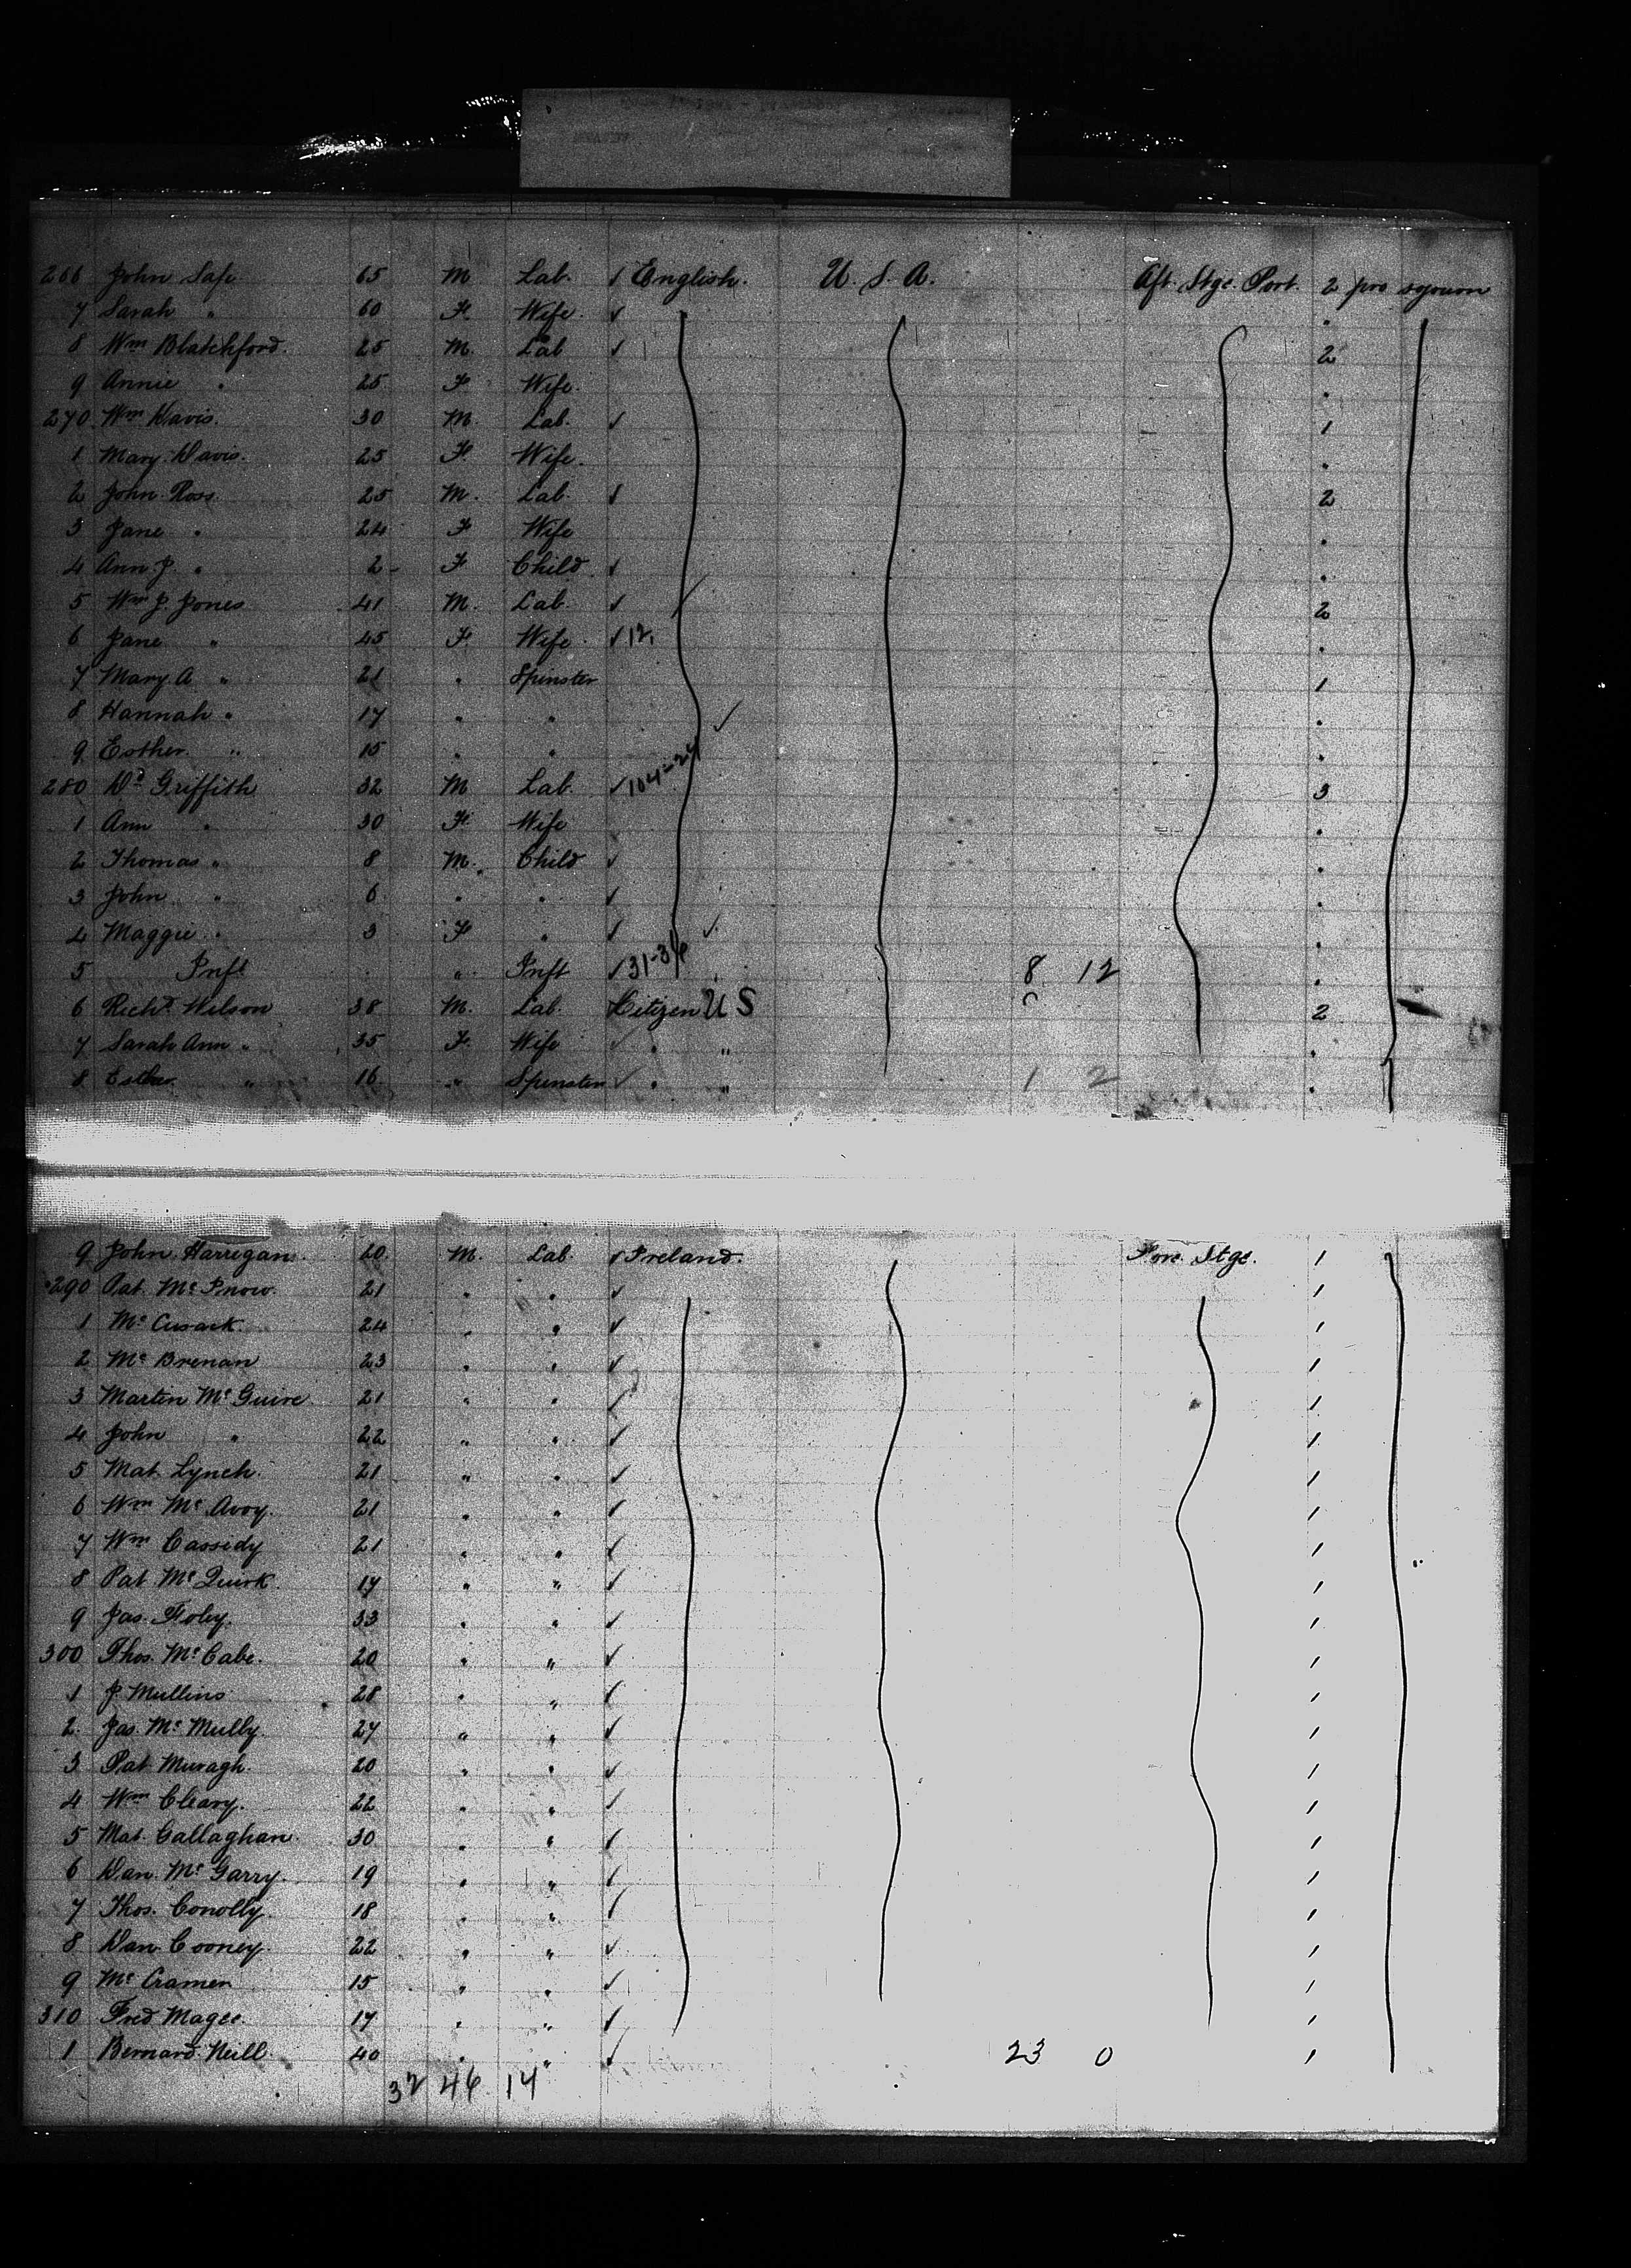 266 John Safe 65 M Lab. ✓ English. U. S. A. Aft. Stge. Port. 2 pro sojourn
7 Sarah " 60 F. Wife. ✓ "
8 Wm Blatchford. 25 M. Lab ✓ 2
9 Annie " 25 F Wife. "
270 Wm Davis. 30 M. Lab. ✓ 1
1 Mary Davis. 25 F. Wife. "
2 John Ross. 25 M. Lab. ✓ 2
3 Jane " 24 F Wife "
4 Ann J. " 2 - F Child ✓ "
5 Wm J. Jones 41 M. Lab. ✓ 2
6 Jane " 45 F. Wife ✓ 12. "
7 Mary A " 21 " Spinster 1
8 Hannah " 17 " " ✓ "
9 Esther " 15 " " "
280 Dd Griffith 32 M Lab. ✓ 104-24 3
1 Ann " 30 F. Wife "
2 Thomas " 8 M. Child ✓ "
3 John " 6 " " ✓ "
4 Maggie " 3 F " ✓ ✓ "
5 Inft " Inft ✓ 31-34 8 12 "
6 Richd Wilson 38 M. Lab. Citizen U S 2
7 Sarah Ann " 35 F. Wife ✓ " " "
8 Esther " 16 " Spinster ✓ " " 1 2 "
9 John Harrigan. 20 M. Lab ✓ Ireland. Fore Stge. 1
290 Pat. Mc 21 " " ✓ 1
1 Mc Cusack 24 " " ✓ 1
2 Mc Brenan 23 " " ✓ 1
3 Martin Mc Guire 21 " " ✓ 1
4 John " 22 " " ✓ 1
5 Mat. Lynch. 21 " " ✓ 1
6 Wm Mc Avoy. 21 " " ✓ 1
7 Wm Cassidy 21 " " ✓ 1
8 Pat Mc Quirk 17 " " ✓ 1
9 Jas. Foley. 33 " " ✓ 1
300 Thos. Mc Cabe. 20 " " ✓ 1
1 J. Mullins 28 " " ✓ 1
2. Jas. Mc Mully. 27 " " ✓ 1
3 Pat Muragh. 20 " " ✓ 1
4 Wm Cleary. 22 " " ✓ 1
5 Mat. Callaghan. 30 " " ✓ 1
6 Dan. Mc Garry. 19 " " ✓ 1
7 Thos. Conolly. 18 " " ✓ 1
8 Dan Cooney. 22 " " ✓ 1
9 Mc Cramer 15 " " ✓ 1
310 Fred Magee. 17 " " ✓ 1
1 Bernard Neill 40 " " ✓ 23 0 1
32 46 14